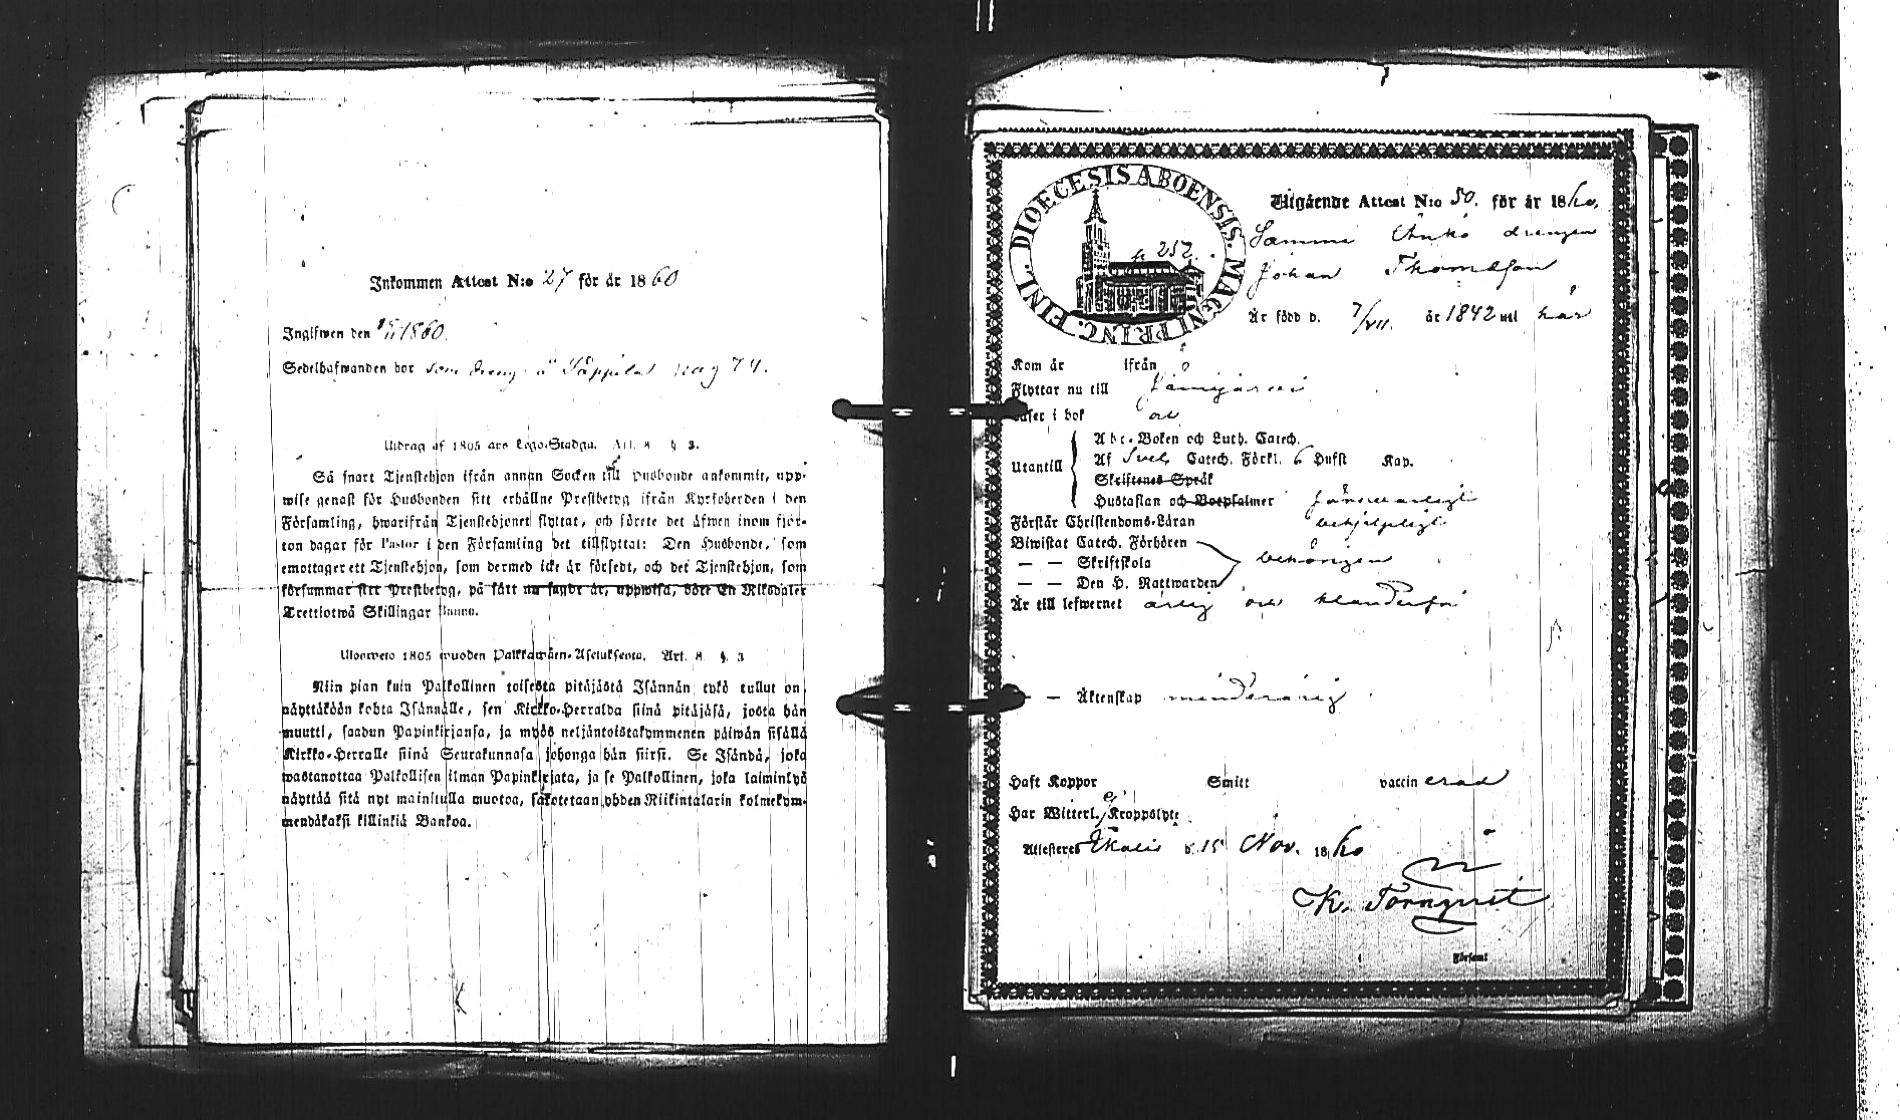 Inkommen Attest N:o 27 för år 1860
Ingifwen den 1860.
Sedelhafwanden bor som dreng å Säppilä pag 74.
Utdrag af 1805 års Lego-Stadga. Art. 8 § 3.
Så snart Tjenstehjon ifrån annan Socken till Husbonde ankommit, upp-
wise genast för Husbonden sitt erhållne Prestbetyg ifrån Kyrkoherden i den
Församling, hwarifrån Tjenstehjonet flyttat, och förete det äfwen inom fjor-
ton dagar för Pastor i den Församling det tillflyttat: Den Husbonde, som
emottager ett Tjenstehjon, som dermed icke är försedt, och det Tjenstehjon, som
försummar sitt Prestbetyg, på sätt nu sagdt är, uppwisa, böte En Riksdaler
Trettiotwå Skillingar Banco.
Ulosweto 1805 wuoden Palkkawäen-Asetuksesta. Art. 8 §. 3
Niin pian kuin Palkollinen toisesta pitäjästä Isännän tykö tullut on,
näyttäköön kohta Isännälle, sen Kirkko-Herralda siinä pitäjäsä, josta hän
muutti, saadun Papinkirjansa, ja myös neljäntoistakymmenen päiwän sisällä
Kirkko-Herralle siinä Seurakunnasa johonga hän siirsi. Se Isändä, joka
wastanottaa Palkollisen ilman Papinkirjata, ja se Palkollinen, joka laiminlyö
näyttää sitä nyt mainitulla muotoa, sakotetaan yhden Riikintalarin kolmekym-
mendäkaksi killinkiä Bankoa.
FINL. DIOECESIS ABOENSIS. MAGNI PRINC.
p 252.
Utgående Attest N:o 50. för år 1860.
drengen
Johan Thomasson
Är född d. 7/VII. år 1842 uti här
Kom år ifrån
Flyttar nu till Jämijärvi
Läser i bok
Abc-Boken och Luth. Catech.
Utantill Af Sveb. Catech. Förkl. 6 Hufst Kap.
Skriftenes Språk
Hustaflan och Botpsalmer försvarligt
Förstår Christendoms-Läran behjelpligt
Biwistat Catech. Förhören
— — Skriftskola behörigen
— — Den H. Nattwarden
Är till lefwernet ärlig och klanderfri
— — Äktenskap minderårig
Haft Koppor Smitt vaccin erad
Har Witterl. ej Kroppslyte
Attesteres Ikalis d. 15 Nov. 1860
K. Törnqvist
Församl